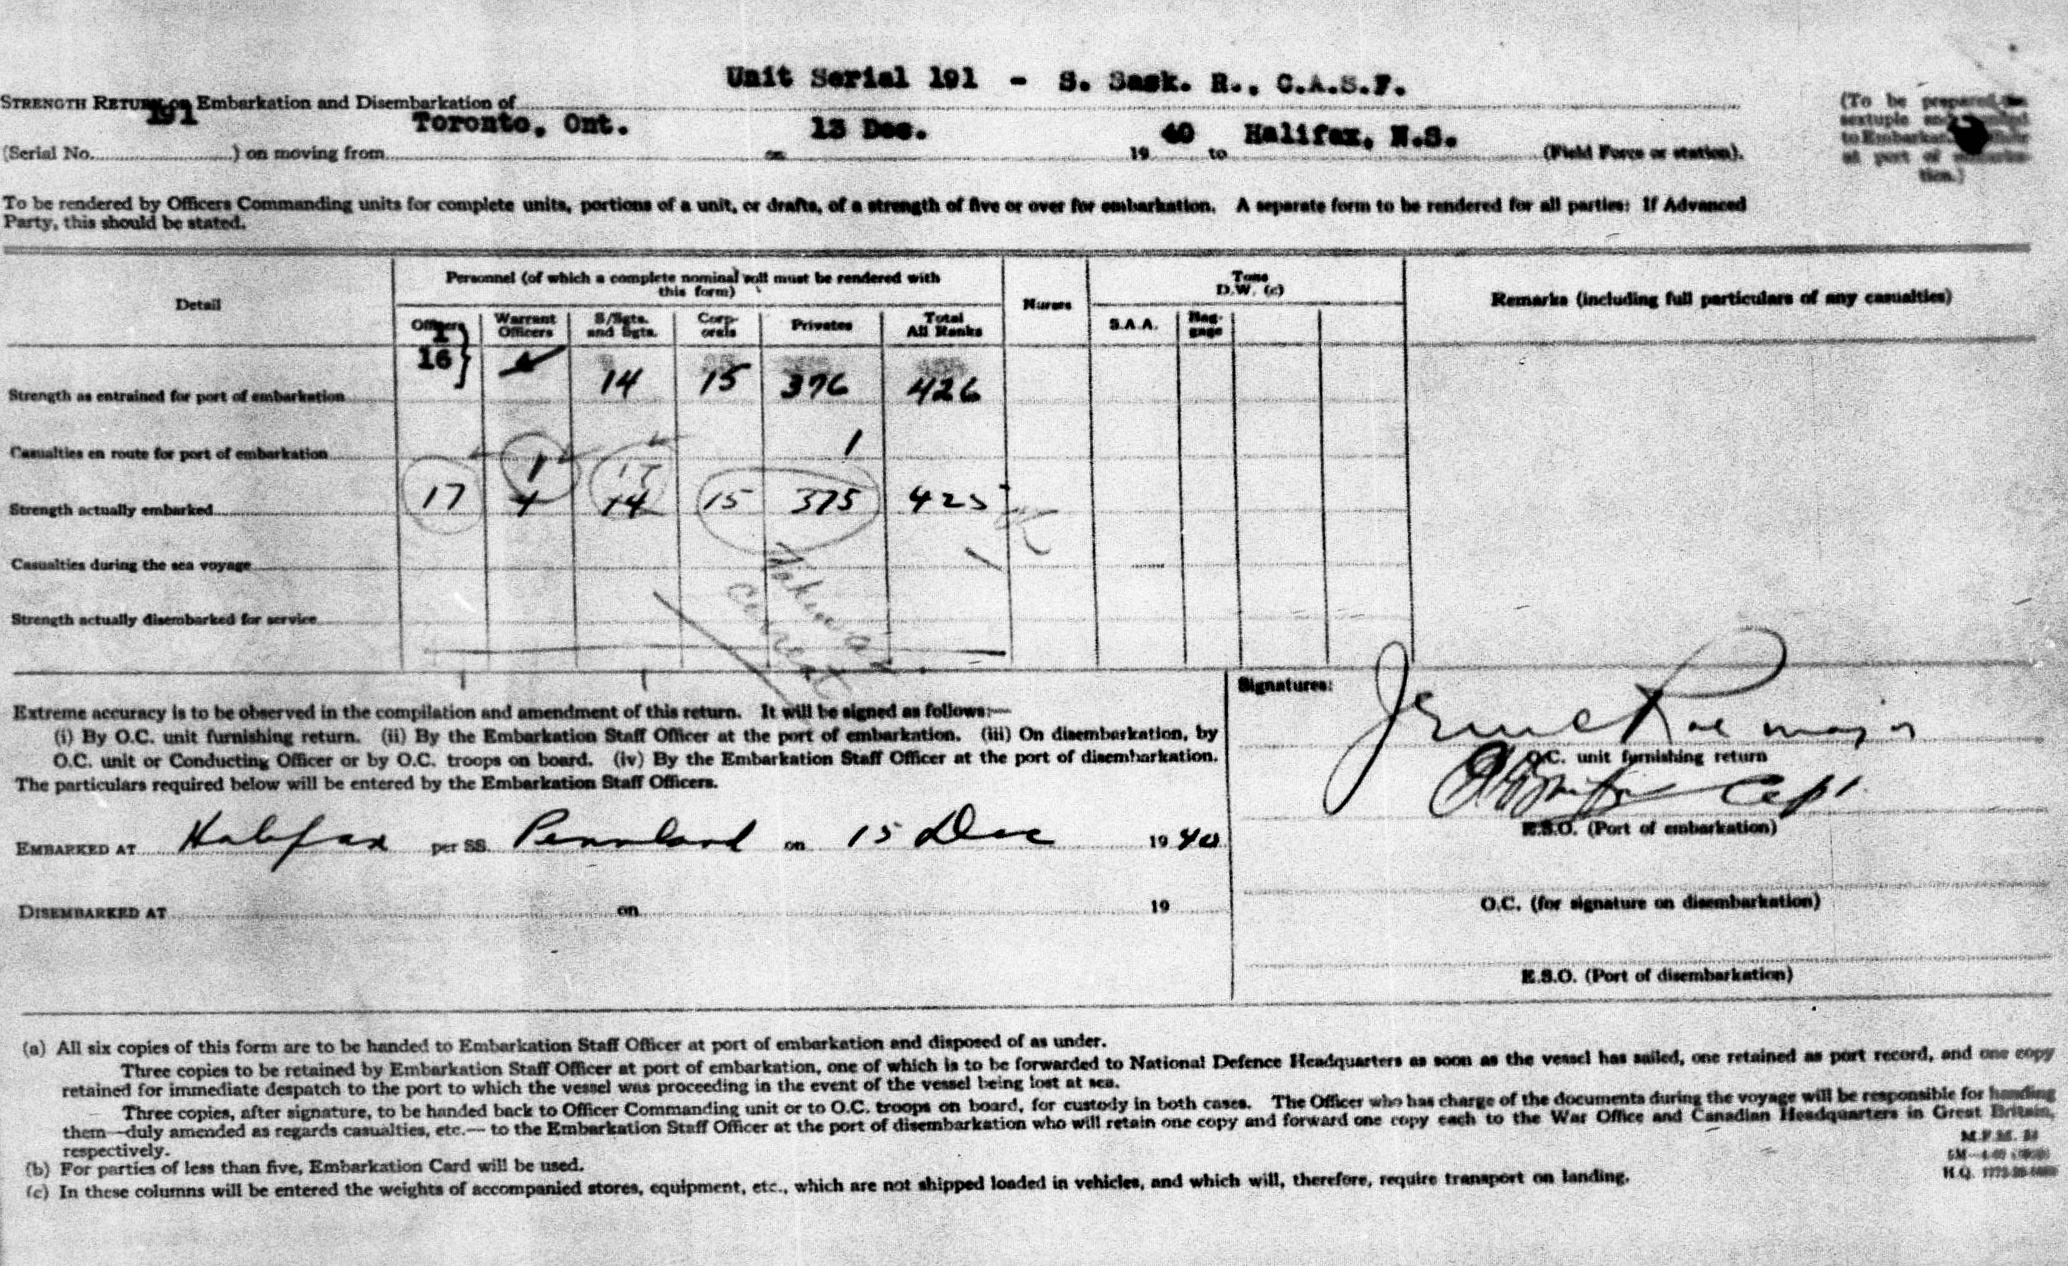 Unit Serial 191 - S. Sask. R., C.A.S.F.
STRENGTH RETURN on Embarkation and Disembarkation of
191 Toronto, Ont. 13 Dec. 40 Halifax, N.S.
(Serial No. ) on moving from on 19 to (Field Force or station).
(To be prepared in
sextuple and
to Embarkation Officer
at port of embarka-
tion.)
To be rendered by Officers Commanding units for complete units, portions of a unit, or drafts, of a strength of five or over for embarkation. A separate form to be rendered for all parties: If Advanced
Party, this should be stated.
Detail
Personnel (of which a complete nominal roll must be rendered with
this form)
Nurses
Tons
D.W. (c)
Remarks (including full particulars of any casualties)
Officers Warrant Officers S/Sgts. and Sgts. Corp-orals Privates Total All Ranks S.A.A. Bag-gage
1
16 }
Strength as entrained for port of embarkation 14 15 376 426
Casualties en route for port of embarkation 1
1 17
Strength actually embarked 17 14 15 375 425
Casualties during the sea voyage
Strength actually disembarked for service
Extreme accuracy is to be observed in the compilation and amendment of this return. It will be signed as follows:—
(i) By O.C. unit furnishing return. (ii) By the Embarkation Staff Officer at the port of embarkation. (iii) On disembarkation, by
O.C. unit or Conducting Officer or by O.C. troops on board. (iv) By the Embarkation Staff Officer at the port of disembarkation.
The particulars required below will be entered by the Embarkation Staff Officers.
EMBARKED AT Halifax per SS. Pennland on 15 Dec 1940
DISEMBARKED AT on 19
Signatures:
major
O.C. unit furnishing return
Capt.
E.S.O. (Port of embarkation)
O.C. (for signature on disembarkation)
E.S.O. (Port of disembarkation)
(a) All six copies of this form are to be handed to Embarkation Staff Officer at port of embarkation and disposed of as under.
Three copies to be retained by Embarkation Staff Officer at port of embarkation, one of which is to be forwarded to National Defence Headquarters as soon as the vessel has sailed, one retained as port record, and one copy
retained for immediate despatch to the port to which the vessel was proceeding in the event of the vessel being lost at sea.
Three copies, after signature, to be handed back to Officer Commanding unit or to O.C. troops on board, for custody in both cases. The Officer who has charge of the documents during the voyage will be responsible for handing
them—duly amended as regards casualties, etc.— to the Embarkation Staff Officer at the port of disembarkation who will retain one copy and forward one copy each to the War Office and Canadian Headquarters in Great Britain,
respectively.
(b) For parties of less than five, Embarkation Card will be used.
(c) In these columns will be entered the weights of accompanied stores, equipment, etc., which are not shipped loaded in vehicles, and which will, therefore, require transport on landing.
M.F.M.
H.Q.